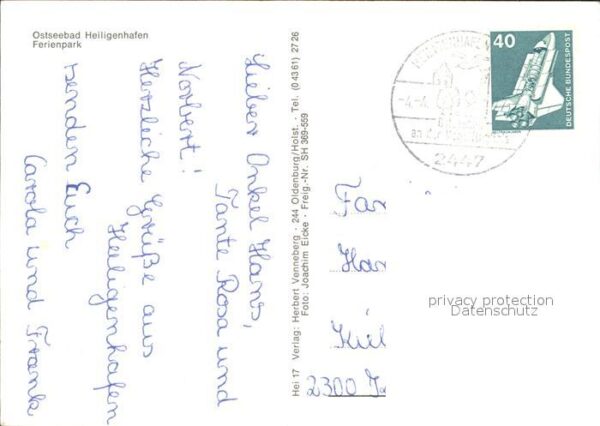 Ostseebad Heiligenhafen
Ferienpark
Lieber Onkel Hans,
Tante Rosa und
Norbert!
Herzliche Grüße aus
Heiligenhafen
senden Euch
Carola und Frank
Hei 17 Verlag: Herbert Venneberg · 244 Oldenburg/Holst. · Tel. (0 43 61) 27 26
Foto: Joachim Eicke · Freig.-Nr. SH 369-559
40
DEUTSCHE BUNDESPOST
2447
Fa
Han
Kiel
2300
privacy protection
Datenschutz